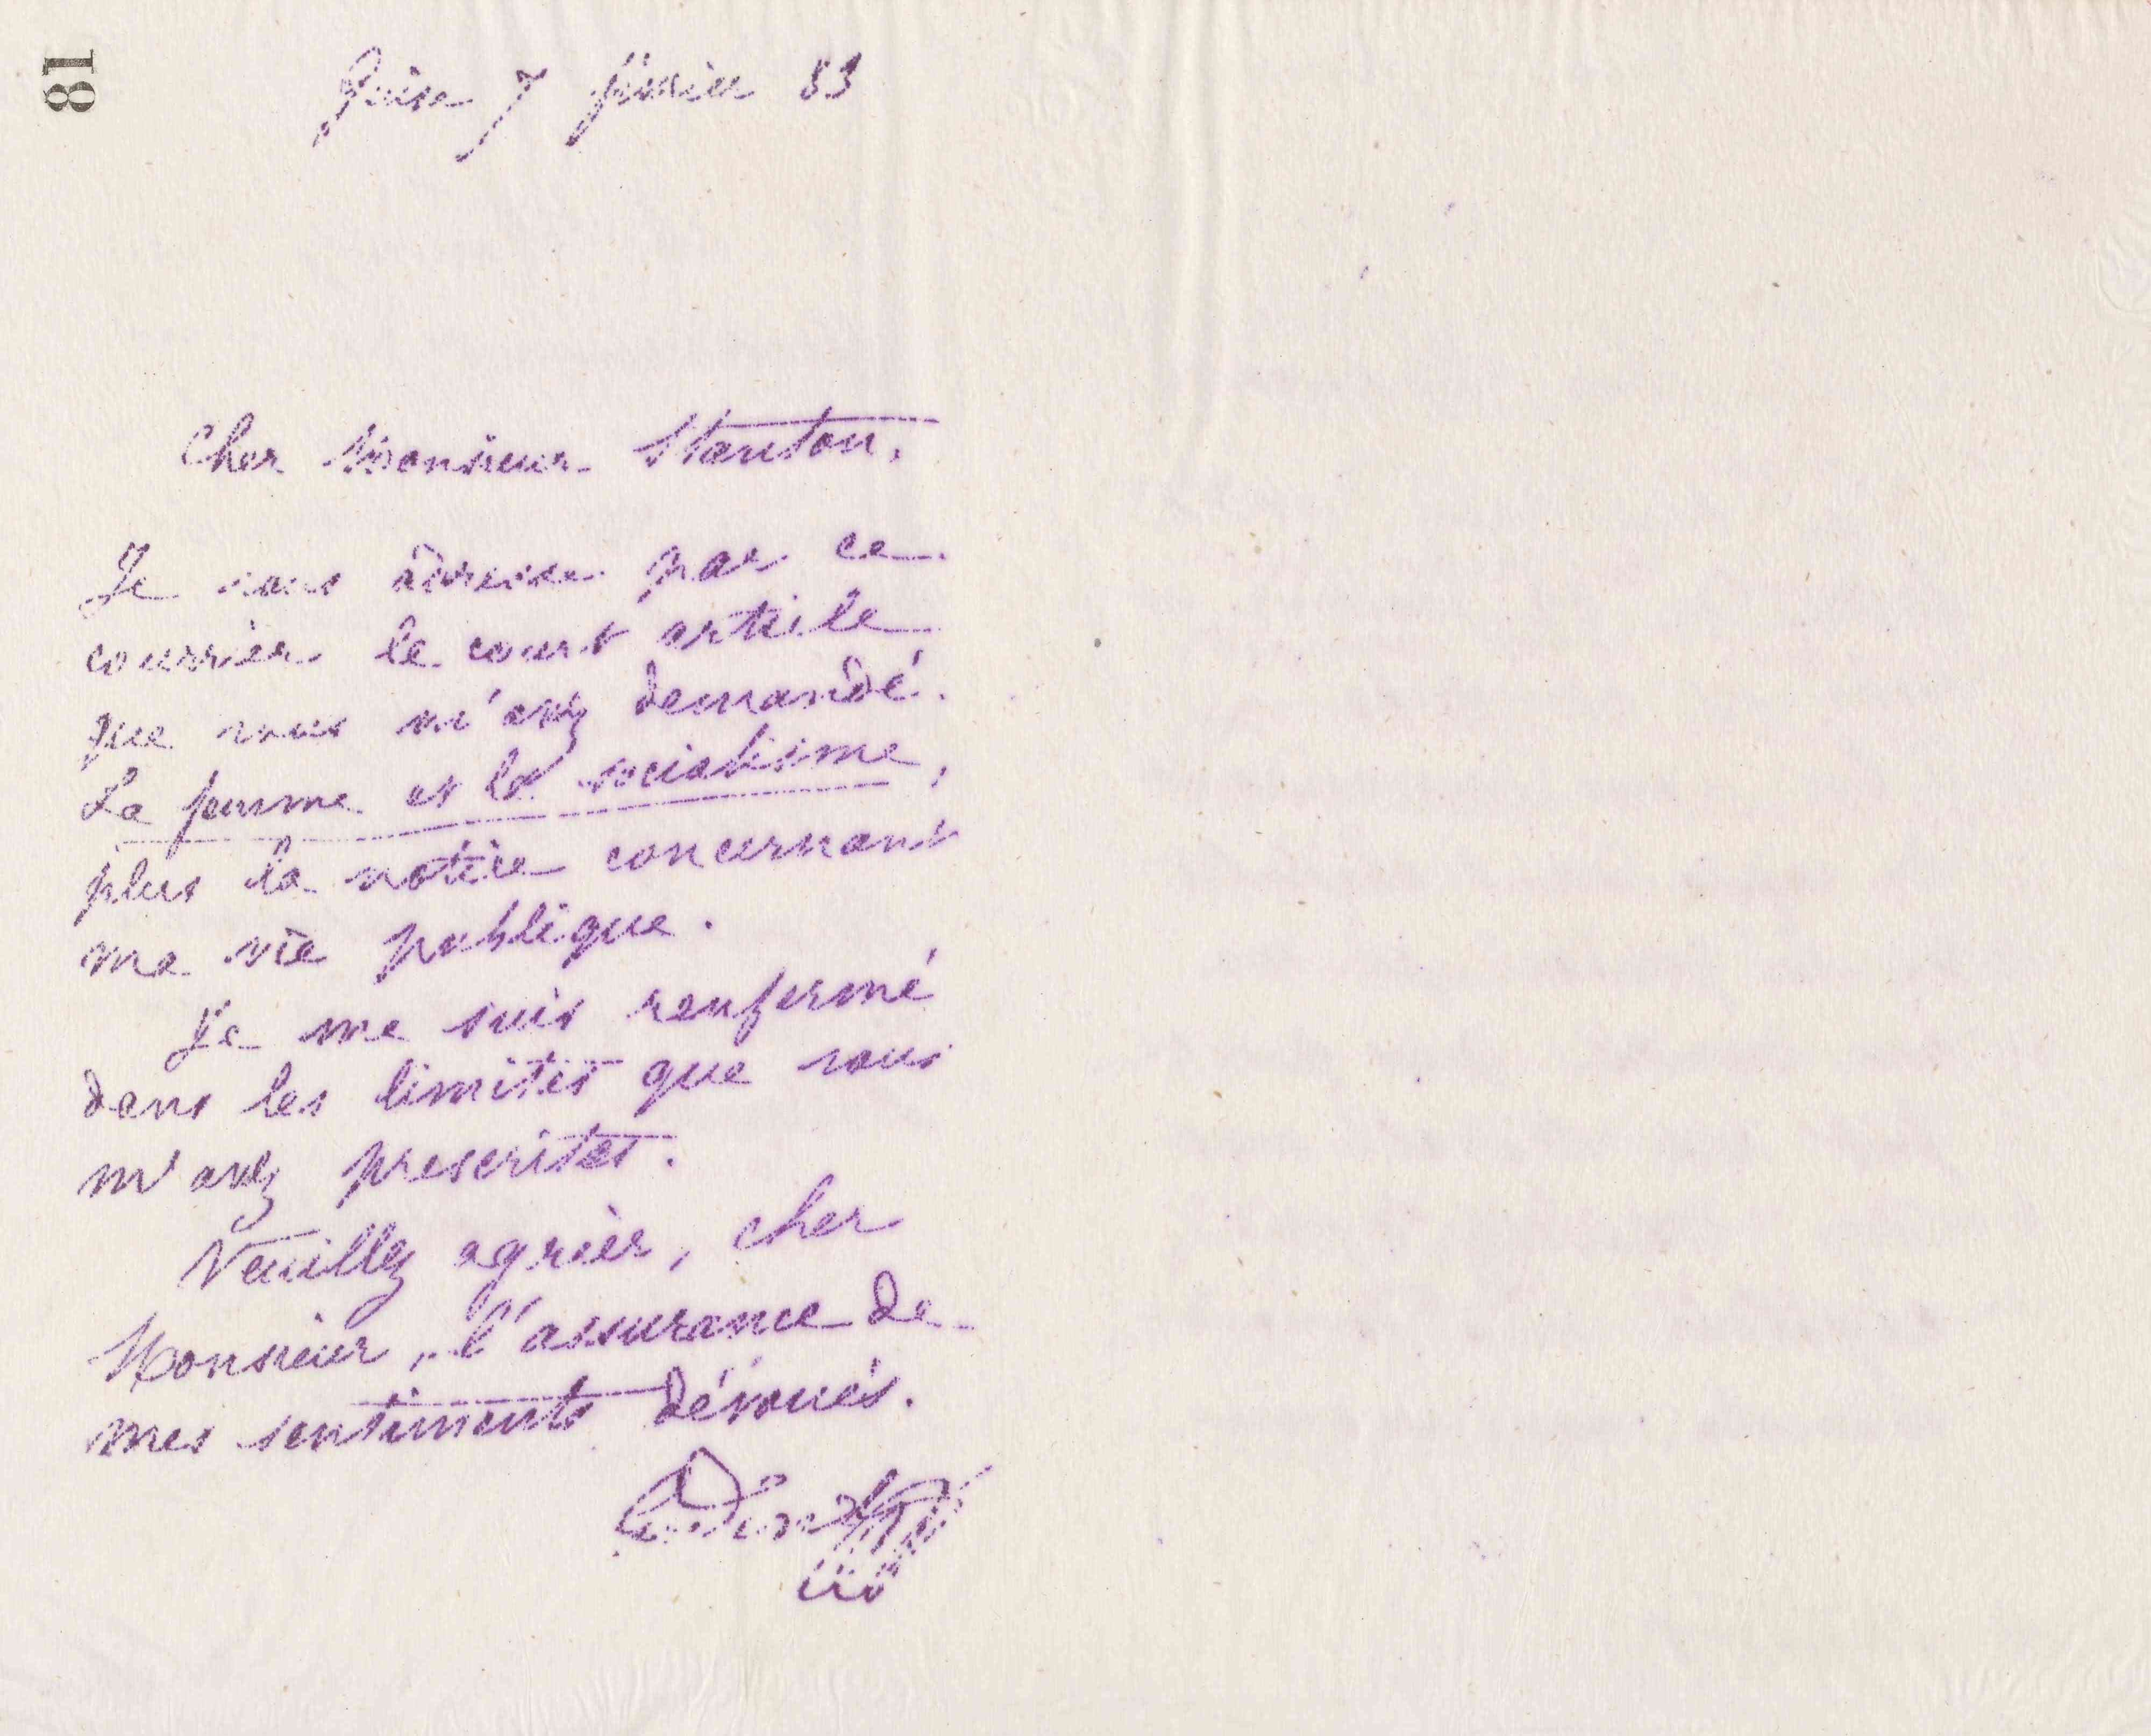 81
Guise 7 février 83
Cher Monsieur Stanton,
Je vous adresse par ce
courrier le court article
que vous m'avez demandé.
La femme et le socialisme,
plus la notice concernant
ma vie publique.
Je me suis renfermé
dans les limites que vous
m'avez prescrites.
Veuillez agréer, cher
Monsieur, l'assurance de
mes sentiments dévoués.
Godin